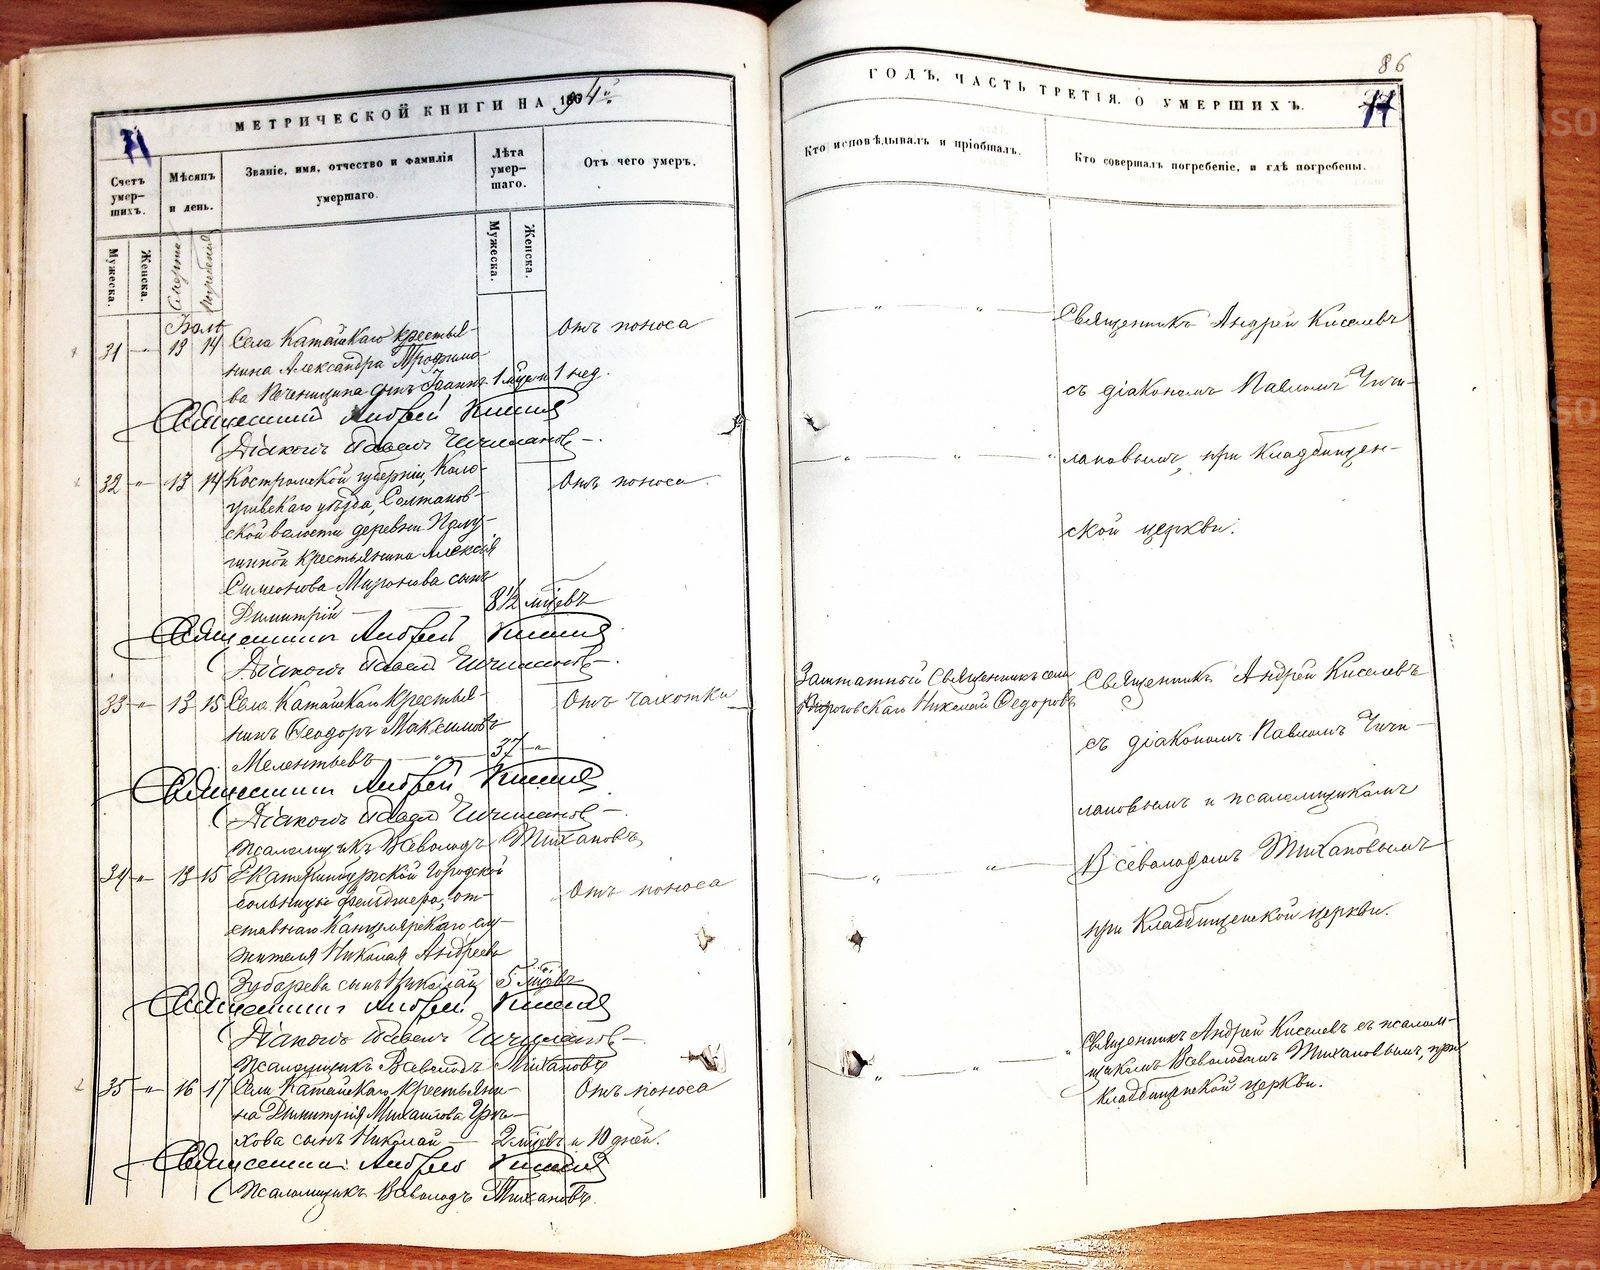 МЕТРИЧЕСКОЙ КНИГИ НА 1894й
Счетъ умер-шихъ.
Мѣсяцъ и день.
Званіе, имя, отчество и фамилія умершаго.
Лѣта умер-шаго.
Отъ чего умеръ.
Мужеска.
Женска.
Смерти
Погребенія
Мужеска.
Женска.
Іюль
31 " 13 14 Села Катайскаго крестья-
нина Александра Трофимо-
ва сынъ Іоаннъ 1 мѣс. и 1 нед.
Отъ поноса
Священникъ Андрей Киселевъ
Діаконъ Павелъ Чичилановъ
32 " 13 14 Костромской губерніи, Коло-
гривскаго уѣзда, Солтанов-
ской волости деревни
крестьянина Алексія
Симеонова Миронова сынъ
Димитрій 8 1/2 мѣсцевъ
Отъ поноса
Священникъ Андрей Киселевъ
Діаконъ Павелъ Чичилановъ
33 " 13 15 Села Катайскаго крестья-
нинъ Ѳеодоръ Максимовъ
Мелентьевъ 37 "
Отъ чахотки
Священникъ Андрей Киселевъ
Діаконъ Павелъ Чичилановъ
Псаломщикъ Всеволодъ Тихановъ
34 " 13 15 Екатеринбургской Городской
больницы фельдшера, от-
ставнаго Канцелярскаго слу-
жителя Николая Андреева
Зубарева сынъ Николай 5 мѣсцевъ
Отъ поноса
Священникъ Андрей Киселевъ
Діаконъ Павелъ Чичилановъ
Псаломщикъ Всеволодъ Тихановъ
35 " 16 17 Села Катайскаго крестьяни-
на Димитрія Михаилова
сынъ Николай 2 мѣсцевъ и 10 дней.
Отъ поноса
Священникъ Андрей Киселевъ
Псаломщикъ Всеволодъ Тихановъ.
86
ГОДЪ, ЧАСТЬ ТРЕТІЯ, О УМЕРШИХЪ.
Кто исповѣдывалъ и пріобщалъ.
Кто совершалъ погребеніе, и гдѣ погребены.
Священникъ Андрей Киселевъ
съ діакономъ Павломъ Чичи-
лановымъ, при Кладбищен-
ской церкви.
Заштатный Священникъ села
Николай Ѳедоровъ
Священникъ Андрей Киселевъ
съ діакономъ Павломъ Чичи-
лановымъ и псаломщикомъ
Всеволодомъ Тихановымъ
при Кладбищенской церкви.
Священникъ Андрей Киселевъ съ псалом-
щикомъ Всеволодомъ Тихановымъ, при
Кладбищенской церкви.